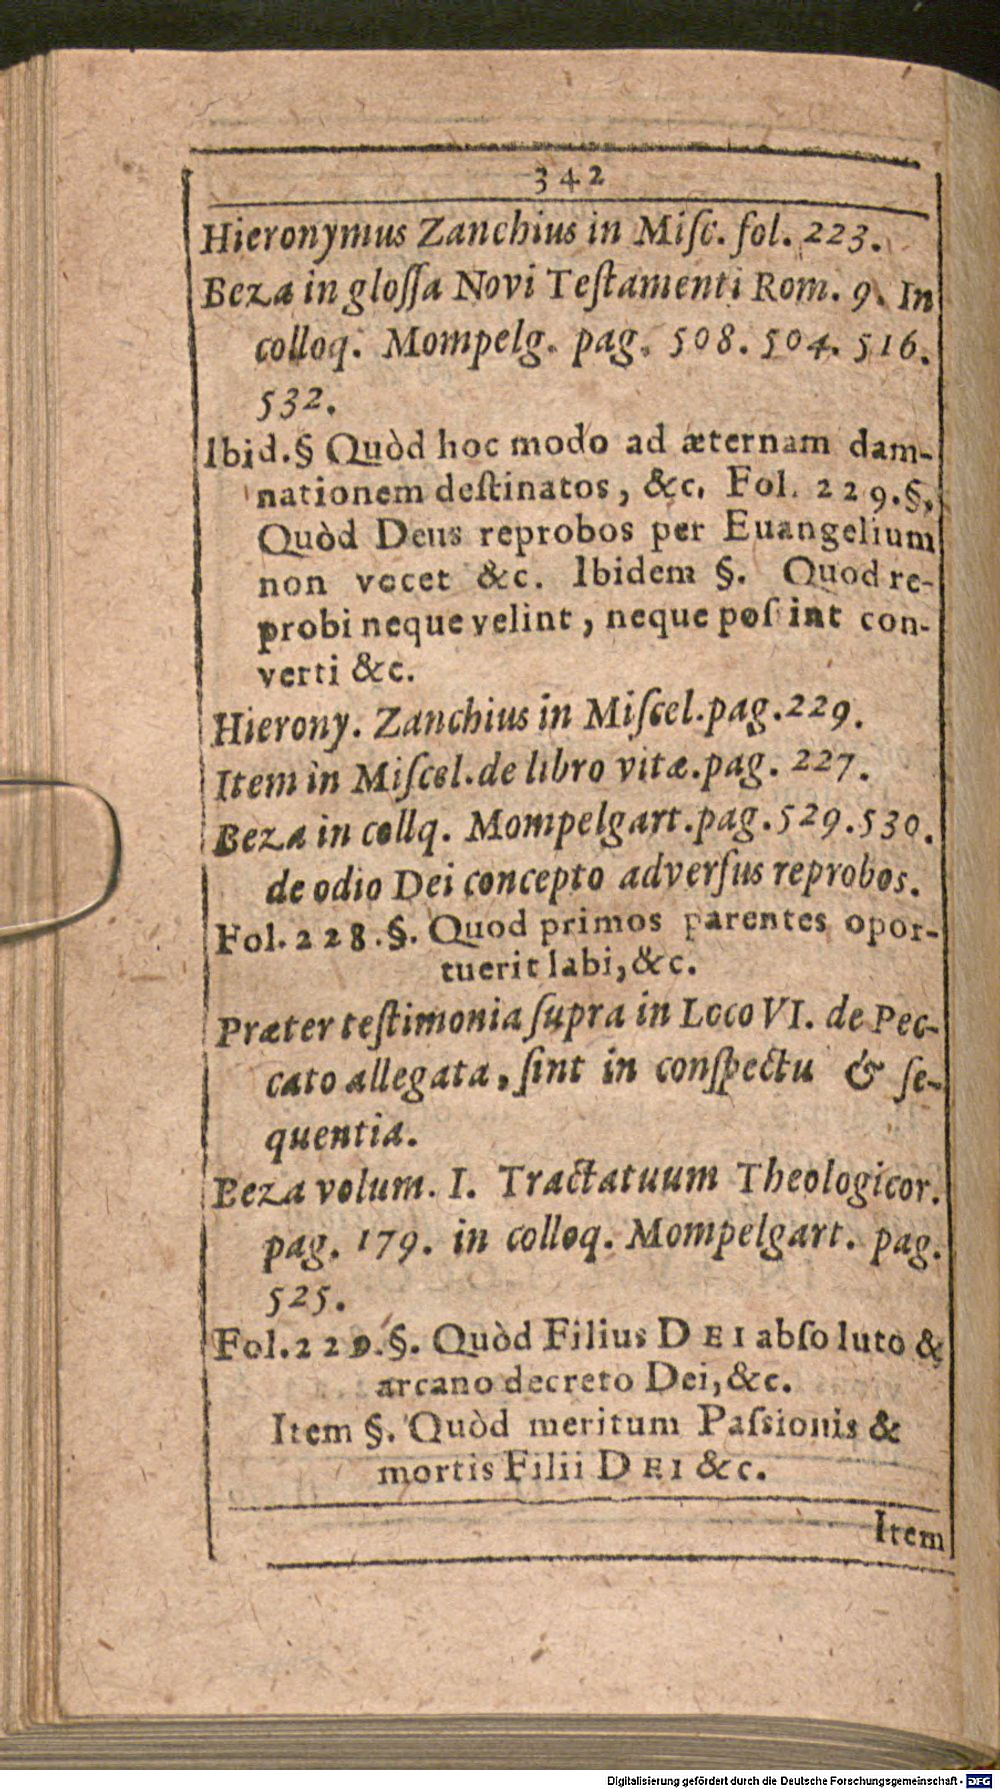 342
Hieronymus Zanchius in Miſc. fol. 223.
Beza in gloſſa Novi Teſtamenti Rom. 9. In
colloq. Mompelg. pag. 508. 504. 516.
532.
Ibid.§ Quòd hoc modo ad æternam dam-
nationem deſtinatos, &c. Fol. 229.§.
Quòd Deus reprobos per Euangelium
non vocet &c. Ibidem §. Quod re-
probi neque velint, neque poſsint con-
verti &c.
Hierony. Zanchius in Miſcel.pag.229.
Item in Miſcel.de libro vitæ.pag. 227.
Beza in collq. Mompelgart.pag.529.530.
de odio Dei concepto adverſus reprobos.
Fol.228.§. Quod primos parentes opor-
tuerit labi,&c.
Præter teſtimonia ſupra in Loco VI. de Pec-
cato allegata, ſint in conſpectu & ſe-
quentia.
Beza volum. I. Tractatuum Theologicor.
pag. 179. in colloq. Mompelgart. pag.
525.
Fol.229.§. Quòd Filius DEI abſoluto &
arcano decreto Dei,&c.
Item §. Quòd meritum Paſsionis &
mortis Filii DEI &c.
Item
Digitalisierung gefördert durch die Deutsche Forschungsgemeinschaft - DFG